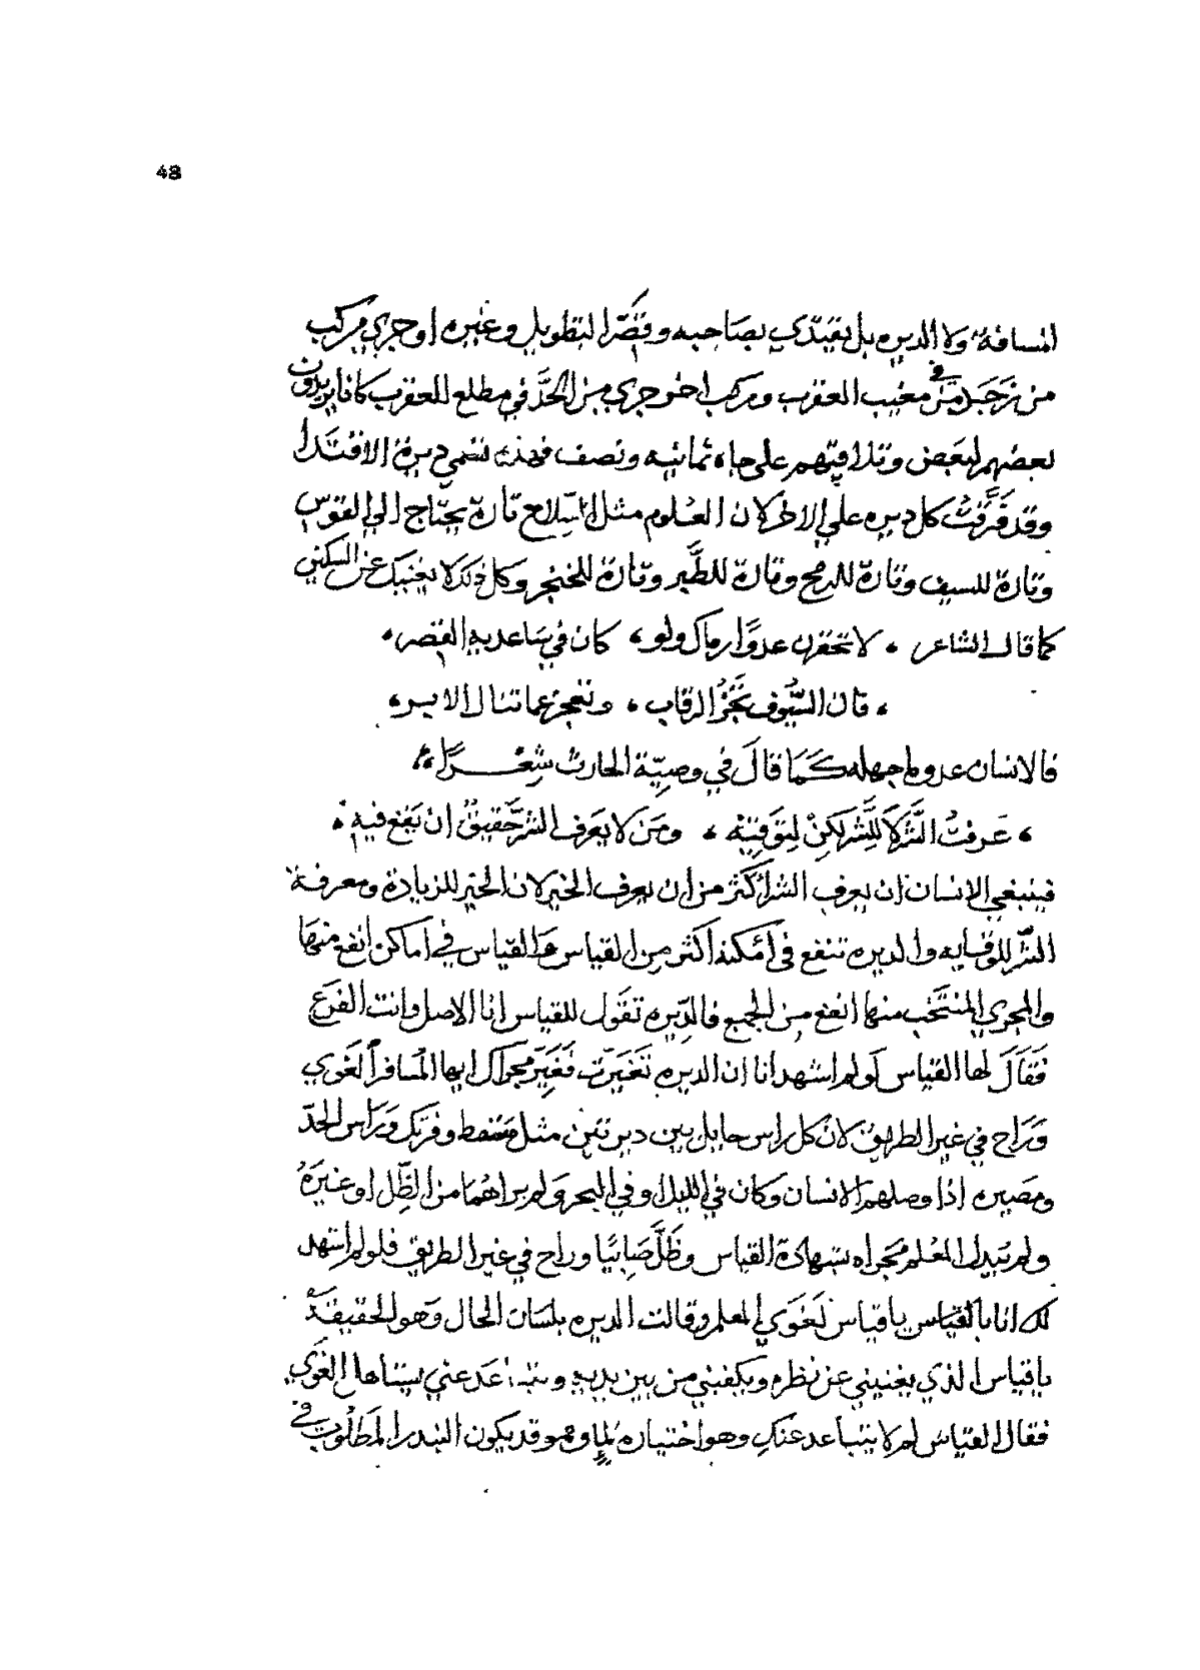 48
المسافة ولا الديره بل يقتدي بصاحبه وقصر التطويل وغيره او جري مركب
من نزجد في مغيب العقرب ومركب اخر جري من الحدَّ في مطلع العقرب كانا يريدون
بعضهم لبعض وتلاقيهم على جاه ثمانيه ونصف فهذه تسمي ديرة الاقتدا
وقد فَرَّقْتُ كل ديره علي الاخر لان العلوم مثل السّلاح تارة يحتاج الي القوس
وتارة للسيف وتارة للرمح وتارة للطَّبر وتارة للخنجر وكل ذلك لا يغنيك عن السكين
كما قال الشاعر ، لا تحقرن عدوًا رماك ولو ، كان في ساعديه القصر ،
، فان السُّيُوف تَحُزُّ الرقاب ، وتعجز عما تنال الابر ،
فالانسان عدو لما جهله كَمَا قالَ في وصيّة الحارث شِعْرًا
، عَرفْتُ الشَّرَّ لا للشَّر لكِنْ لِتَوقِيَّهْ ، ومَن لا يَعرفِ الشر حَقيقٌ ان يَقَع فيهِ ،
فينبغي الانسان ان يعرف الشر اكثر من ان يعرف الخير لان الخير للزيادة ومعرفة
الشر للوقايه والديره تنفع في امكنة اكثر من القياس والقياس في اماكن انفع منها
والمجري المنتَخَب منها انفع من الجميع فالدّيره تقول للقياس انا الاصل وانت الفرع
فَقَالَ لها القياس لَو لم اشهد انا ان الديره تَغَيَّرَت فَغَيِّر مجراك ايها المُسافر لَغَوي
وَرَاح في غير الطريق لان كل راس حايل بين ديرتين مثل مَسْقط وفرتك وَرَاس الحدّ
ومصيره اذا وصلهم الانسان وكان في الليل او في البحر ولم يراهُمَا من الظّل او غيرَهُ
ولم يُبدل المُعَلم مَجراه بشهادة القياس وظَلَّ صَابيًا وراح في غير الطريق فلو لم اشهد
لك انا بالقياس يا قياس لَغَوَي المعلم وقالت الديره بلسان الحال وَهو الحقيقة
يا قياس الذي يغنيني عن نظرم ويكفيني من بين يديه وتباعد عني يتناها الغوي
فقال القياس لم لا يتباعد عنك وهو اختياره وهو قد يكون البندر المَطلُوب في